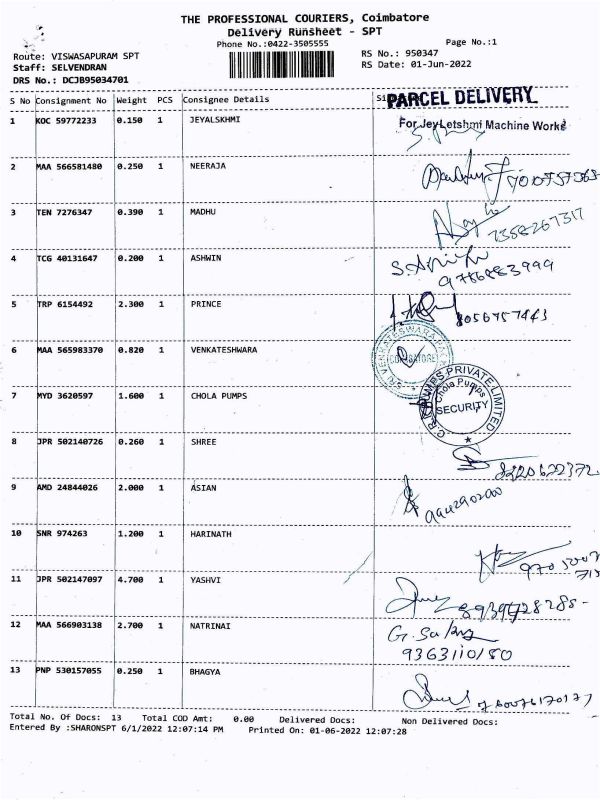 THE PROFESSIONAL COURIERS, Coimbatore
Delivery Runsheet - SPT
Phone No.:0422-3505555
Page No.:1
Route: VISWASAPURAM SPT
RS No.: 950347
Staff: SELVENDRAN
RS Date: 01-Jun-2022
DRS No.: DCJB95034701
S No Consignment No Weight PCS Consignee Details
PARCEL DELIVERY
1 KOC 59772233 0.150 1 JEYALSKHMI
For JeyLetshmi Machine Works
2 MAA 566581480 0.250 1 NEERAJA
3 TEN 7276347 0.390 1 MADHU
7358267317
4 TCG 40131647 0.200 1 ASHWIN
9786883999
5 TRP 6154492 2.300 1 PRINCE
8056757443
6 MAA 565983370 0.820 1 VENKATESHWARA
COIMBATORE
7 MYD 3620597 1.600 1 CHOLA PUMPS
C.R.I. PUMPS PRIVATE LIMITED
Chola Pumps
SECURITY
8 JPR 502140726 0.260 1 SHREE
8220622372
9 AMD 24844026 2.000 1 ASIAN
10 SNR 974263 1.200 1 HARINATH
11 JPR 502147097 4.700 1 YASHVI
12 MAA 566903138 2.700 1 NATRINAI
9363110180
13 PNP 530157055 0.250 1 BHAGYA
Total No. Of Docs: 13 Total COD Amt: 0.00 Delivered Docs: Non Delivered Docs:
Entered By :SHARONSPT 6/1/2022 12:07:14 PM Printed On: 01-06-2022 12:07:28